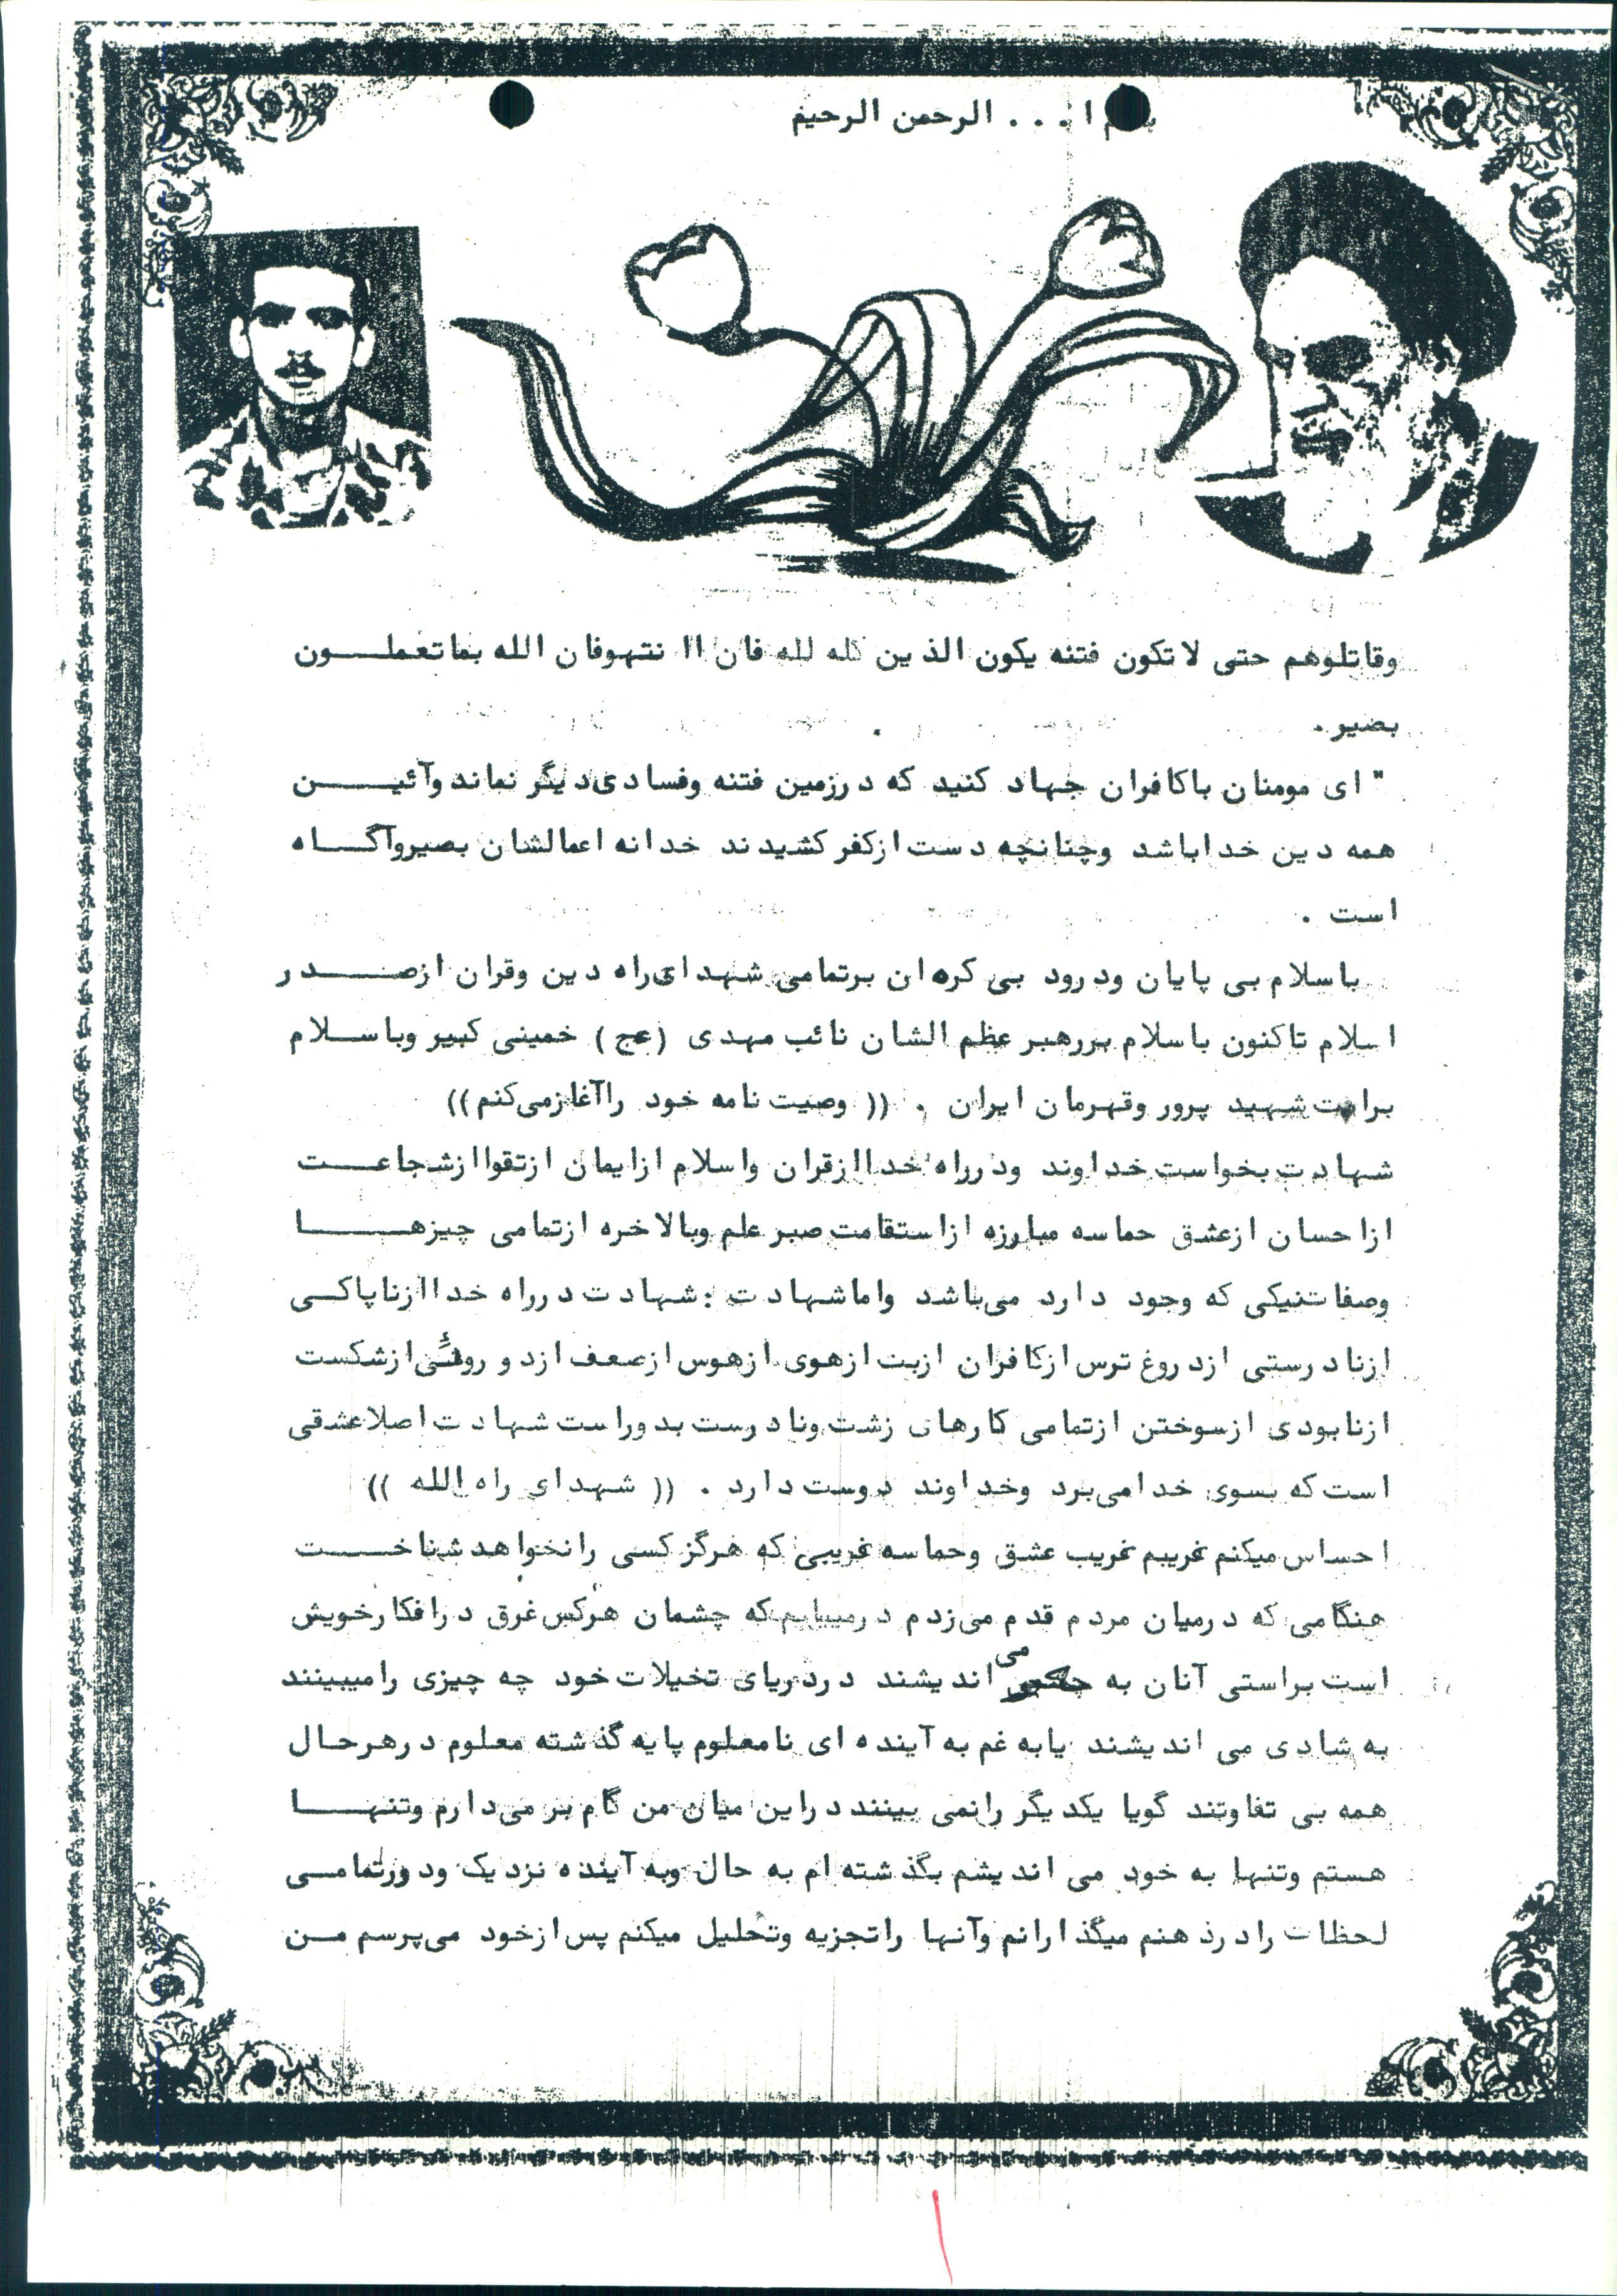 بسم ا... الرحمن الرحیم
وقاتلوهم حتی لاتکون فتنه یکون الذین کله لله فان اا نتهوفان الله بماتعملون
بصیر.
" ای مومنان باکافران جهاد کنید که درزمین فتنه وفسادی‌دیگر نماند وآئین
همه دین خداباشد وچنانچه دست ازکفر کشیدند خدانه اعمالشان بصیروآگاه
است .
باسلام بی پایان ودرود بی کران برتمامی شهدای‌راه دین وقران ازصدر
اسلام تاکنون باسلام بررهبر عظم الشان نائب مهدی (عج) خمینی کبیر وباسلام
برامت شهید پرور وقهرمان ایران . (( وصیت نامه خود راآغازمی‌کنم))
شهادت بخواست خداوند ودرراه خداازقران واسلام ازایمان ازتقواازشجاعت
ازاحسان ازعشق حماسه مبارزه ازاستقامت صبر علم وبالاخره ازتمامی چیزها
وصفات‌نیکی که وجود دارد می‌باشد واماشهادت : شهادت درراه خداازناپاکی
ازنادرستی ازدروغ ترس ازکافران ازبت ازهوی ازهوس ازصعف ازدوروئی ازشکست
ازنابودی ازسوختن ازتمامی کارهای زشت ونادرست بدوراست شهادت اصلاعشقی
است که بسوی خدامی‌برد وخداوند دوست دارد . (( شهدای راه الله ))
احساس میکنم غریبم غریب عشق وحماسه غریبی که هرگز کسی رانخواهد شناخت
هنگامی که درمیان مردم قدم می‌زدم درمییابم که چشمان هرکس غرق درافکارخویش
است براستی آنان به چه می اندیشند دردریای تخیلات خود چه چیزی رامیبینند
به شادی می اندیشند یابه غم به آینده ای نامعلوم یابه گذشته معلوم درهرحال
همه بی تفاوتند گویا یکدیگر رانمی بینند دراین میان من گام بر می‌دارم وتنها
هستم وتنها به خود می اندیشم بگذشته ام به حال وبه آینده نزدیک ودورتمامی
لحظات رادرذهنم میگذارانم وآنها راتجزیه وتحلیل میکنم پس ازخود می‌پرسم من